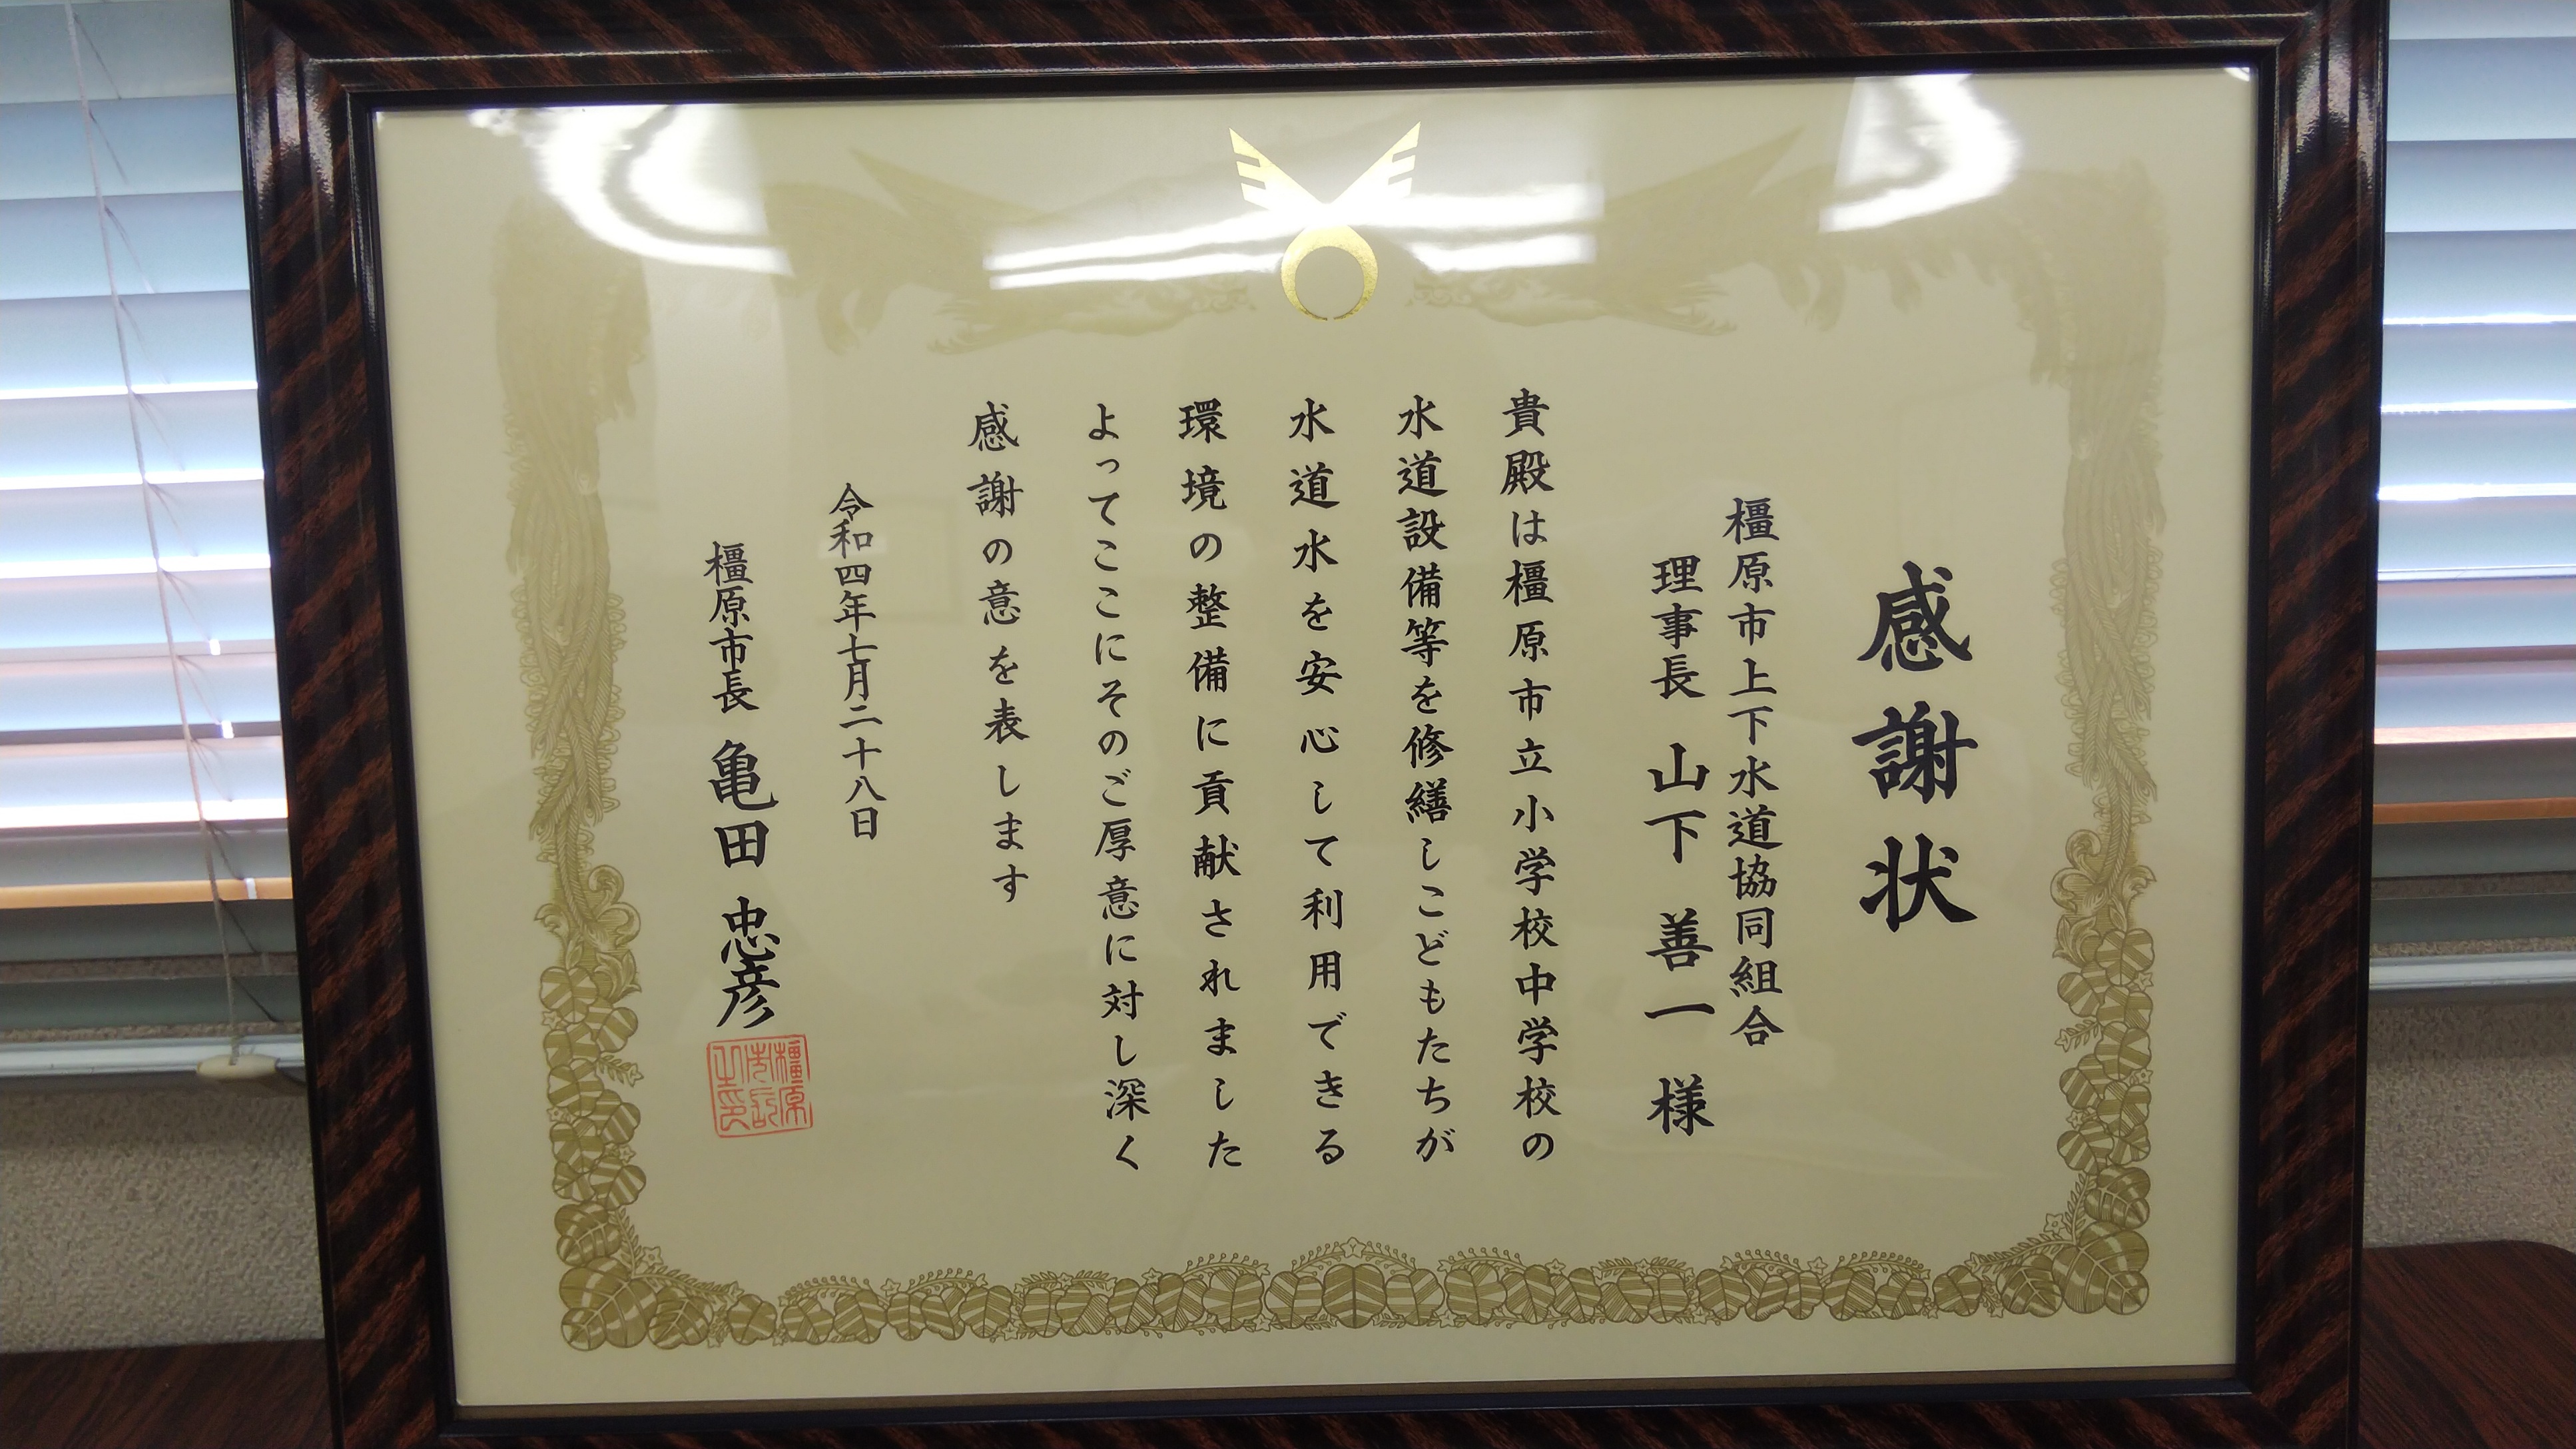 感謝状
橿原市上下水道協同組合
理事長 山下 善一 様
貴殿は橿原市立小学校中学校の
水道設備等を修繕しこどもたちが
水道水を安心して利用できる
環境の整備に貢献されました
よってここにそのご厚意に対し深く
感謝の意を表します
令和四年七月二十八日
橿原市長 亀田 忠彦